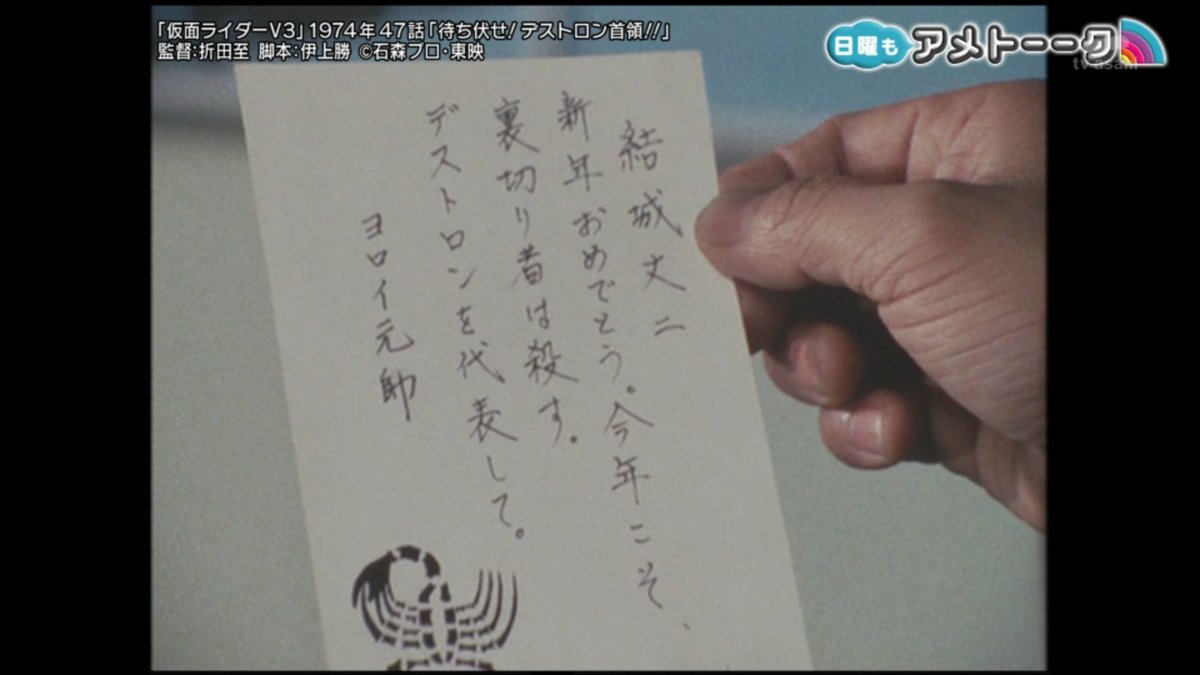 「仮面ライダーV3」1974年47話「待ち伏せ!デストロン首領!!」
監督:折田至 脚本:伊上勝 ©石森プロ・東映
日曜も アメトーーク
tv asahi
結城丈二
新年おめでとう。今年こそ、
裏切り者は殺す。
デストロンを代表して。
ヨロイ元帥